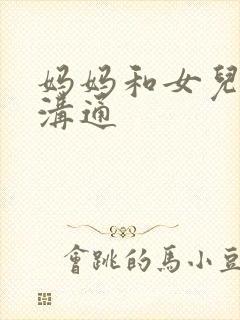 妈妈和女兒
溝通
會跳的馬小豆